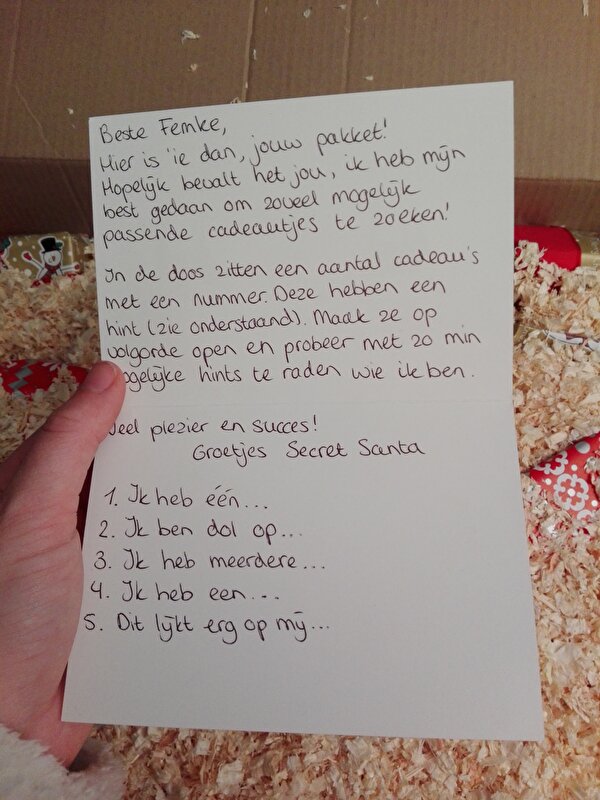 Beste Femke,
Hier is 'ie dan, jouw pakket!
Hopelijk bevalt het jou, ik heb mijn
best gedaan om zoveel mogelijk
passende cadeautjes te zoeken!
In de doos zitten een aantal cadeau's
met een nummer. Deze hebben een
hint (zie onderstaand). Maak ze op
volgorde open en probeer met zo min
mogelijke hints te raden wie ik ben.
Veel plezier en succes!
Groetjes Secret Santa
1. Ik heb één...
2. Ik ben dol op...
3. Ik heb meerdere...
4. Ik heb een...
5. Dit lijkt erg op mij...